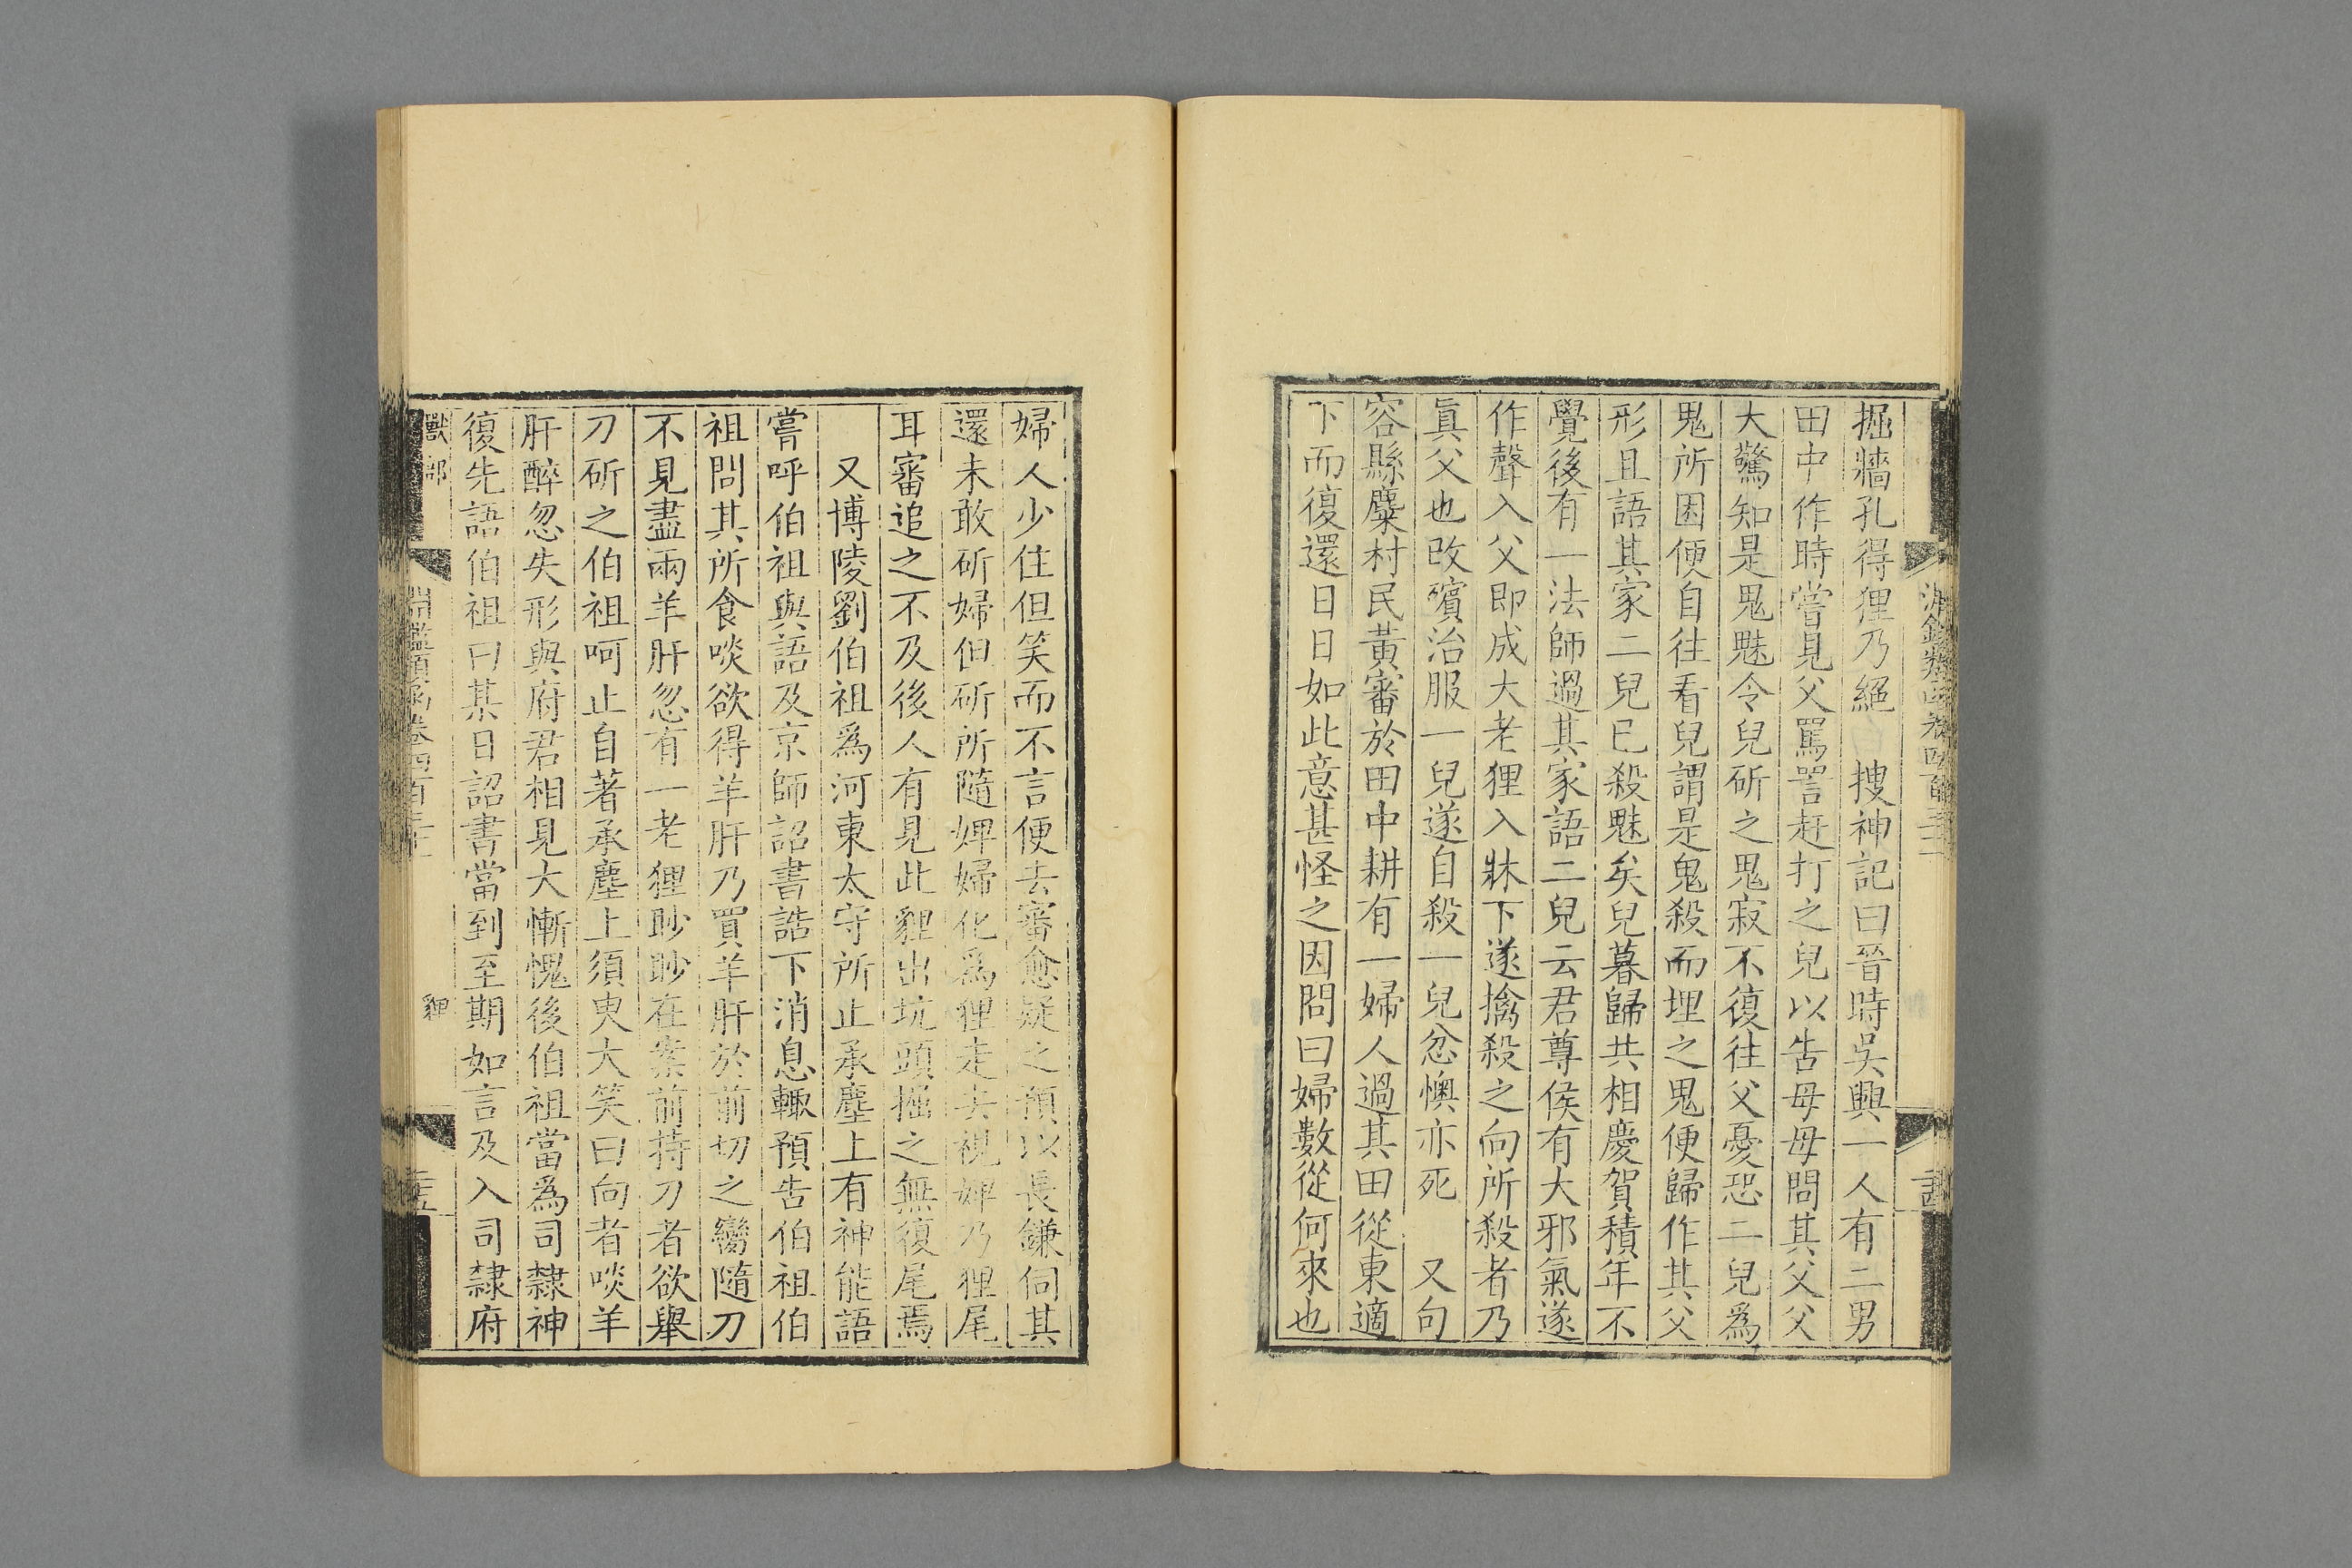 掘牆孔得狸乃絕 搜神記曰晉時吳興一人有二男
田中作時嘗見父罵詈赶打之兒以告母母問其父父
大驚知是鬼魅令兒斫之鬼寂不復往父憂恐二兒爲
鬼所困便自往看兒謂是鬼殺而埋之鬼便歸作其父
形且語其家二兒已殺魅矣兒暮歸共相慶賀積年不
覺後有一法師過其家語二兒云君尊侯有大邪氣遂
作聲入父即成大老狸入牀下遂擒殺之向所殺者乃
眞父也改殯治服一兒遂自殺一兒忿懊亦死 又句
容縣麋村民黃審於田中耕有一婦人過其田從東適
下而復還日日如此意甚怪之因問曰婦數從何來也
婦人少住但笑而不言便去審愈疑之預以長鎌伺其
還未敢斫婦但斫所隨婢婦化爲狸走去視婢乃狸尾
耳審追之不及後人有見此貍出坑頭掘之無復尾焉
又博陵劉伯祖爲河東太守所止承塵上有神能語
嘗呼伯祖與語及京師詔書誥下消息輒預告伯祖伯
祖問其所食啖欲得羊肝乃買羊肝於前切之臠隨刀
不見盡兩羊肝忽有一老狸眇眇在案前持刀者欲舉
刀斫之伯祖呵止自著承塵上須臾大笑曰向者啖羊
肝醉忽失形與府君相見大慚愧後伯祖當爲司隸神
復先語伯祖曰某日詔書當到至期如言及入司隸府
獸部 淵鑑類函卷四百三十一 貍